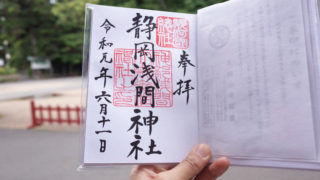 奉拝
静岡浅間神社
令和元年六月十一日